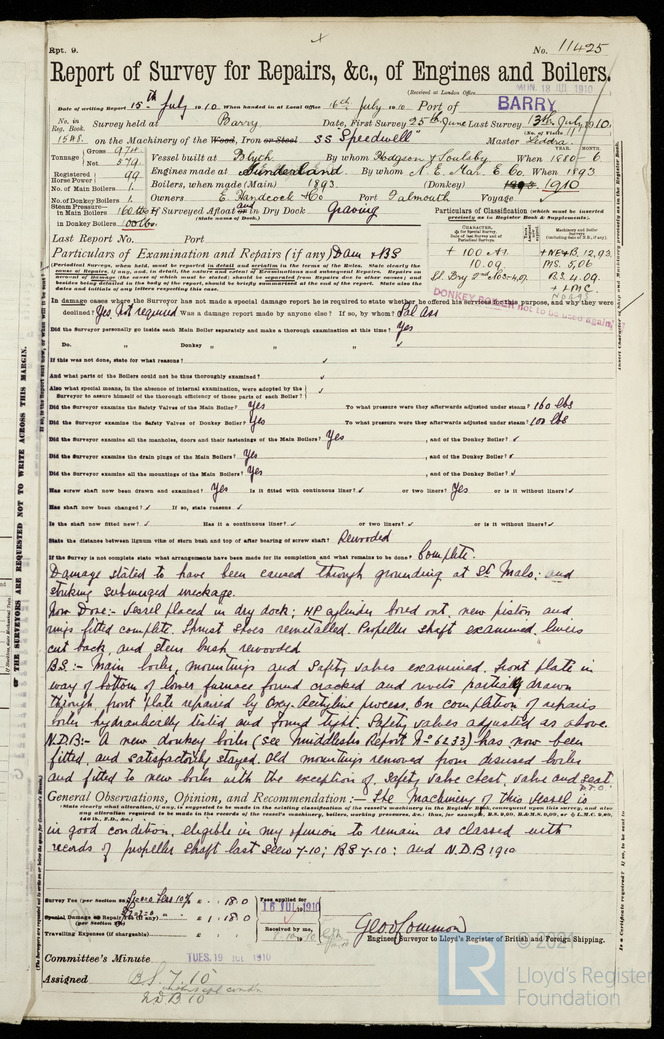 Rpt. 9.
No. 11425
Report of Survey for Repairs, &c., of Engines and Boilers.
(Received at London Office
MON. 18 JUL 1910
Date of writing Report 15th July 1910 When handed in at Local Office 16th July 1910 Port of BARRY
No. in Reg. Book. Survey held at Barry Date, First Survey 25th June Last Survey 13th July 1910
(No. of Visits 11)
on the Machinery of the Wood, Iron or Steel SS "Speedwell" Master
Tonnage Gross 974 Net 579
Vessel built at Blyth By whom Hodgson & Soulsby When 1880 - 6
YEAR. MONTH.
Engines made at Sunderland By whom N. E. Mar. E. Co. When 1893
Registered Horse Power 99
Boilers, when made (Main) 1893 (Donkey) 1893 1910
No. of Main Boilers 1
No. of Donkey Boilers 1
Owners E. Handcock & Co Port Falmouth Voyage
Steam Pressure in Main Boilers 160 lbs
in Donkey Boilers 100 lbs.
If Surveyed Afloat or in Dry Dock Graving
(State name of Dock.)
Particulars of Classification (which must be inserted precisely as in Register Book & Supplements).
Last Report No. Port
Particulars of Examination and Repairs (if any) Dam & BS
+ 100 A1
10.09
+ NE&B. 12,93
MS. 5,06
BS 4.09
+ LMC.
DONKEY
not to be used again
In damage cases where the Surveyor has not made a special damage report he is required to state whether he offered his services for this purpose, and why they were
declined? Yes, Not required Was a damage report made by anyone else? If so, by whom? Sal Ass
Did the Surveyor personally go inside each Main Boiler separately and make a thorough examination at this time? Yes
Do. " Donkey " " "
If this was not done, state for what reasons?
And what parts of the Boilers could not be thus thoroughly examined?
Also what special means, in the absence of internal examination, were adopted by the
Surveyor to assure himself of the thorough efficiency of those parts of each Boiler?
Did the Surveyor examine the Safety Valves of the Main Boiler? Yes To what pressure were they afterwards adjusted under steam? 160 lbs
Did the Surveyor examine the Safety Valves of Donkey Boiler? Yes To what pressure were they afterwards adjusted under steam? 100 lbs
Did the Surveyor examine all the manholes, doors and their fastenings of the Main Boilers? Yes , and of the Donkey Boiler?
Did the Surveyor examine the drain plugs of the Main Boilers? Yes , and of the Donkey Boiler?
Did the Surveyor examine all the mountings of the Main Boilers? Yes , and of the Donkey Boiler?
Has screw shaft now been drawn and examined? Yes Is it fitted with continuous liner? or two liners? Yes or is it without liners?
Has shaft now been changed? If so, state reasons
Is the shaft now fitted new? Has it a continuous liner? or two liners? or is it without liners?
State the distance between lignum vitæ of stern bush and top of after bearing of screw shaft? Rewooded
If the Survey is not complete state what arrangements have been made for its completion and what remains to be done? Complete.
Damage stated to have been caused through grounding at St. Malo; and
striking submerged wreckage.
Now Done:- Vessel placed in dry dock; HP cylinder bored out, new piston and
rings fitted complete. Thrust shoes remetalled. Propeller shaft examined, liners
cut back, and stern bush rewooded
B.S:- Main boiler, mountings and Safety valves examined. Front plate in
way of bottom of lower furnace found cracked and rivets partially drawn
through front plate repaired by Oxy-Acetyline process, On completion of repairs
boiler hydraulically tested and found tight. Safety valves adjusted as above.
N.D.B:- A new donkey boiler (see Middlesbro Report No 6233) has now been
fitted, and satisfactorily stayed. Old mountings removed from disused boiler
and fitted to new boiler with the exception of Safety valve chest, valve and seat
P.T.O.
General Observations, Opinion, and Recommendation:— The Machinery of this vessel is
in good condition, eligible in my opinion to remain as classed with
records of propeller shaft last seen 7-10; BS 7-10; and N.D.B 1910
Survey Fee £ 18.0
Special Damage or Repairs Fee (if any) £ 1.18.0
Travelling Expenses (if chargeable) £
Fees applied for
16 JUL 1910
Received by me,
Geo. Common
Engineer Surveyor to Lloyd's Register of British and Foreign Shipping.
Committee's Minute TUES. 19 JUL 1910
Assigned B.S 7.10
N.D.B. 10
© 2021
LR
Lloyd's Register
Foundation
OF THE SURVEYORS ARE REQUESTED NOT TO WRITE ACROSS THIS MARGIN.